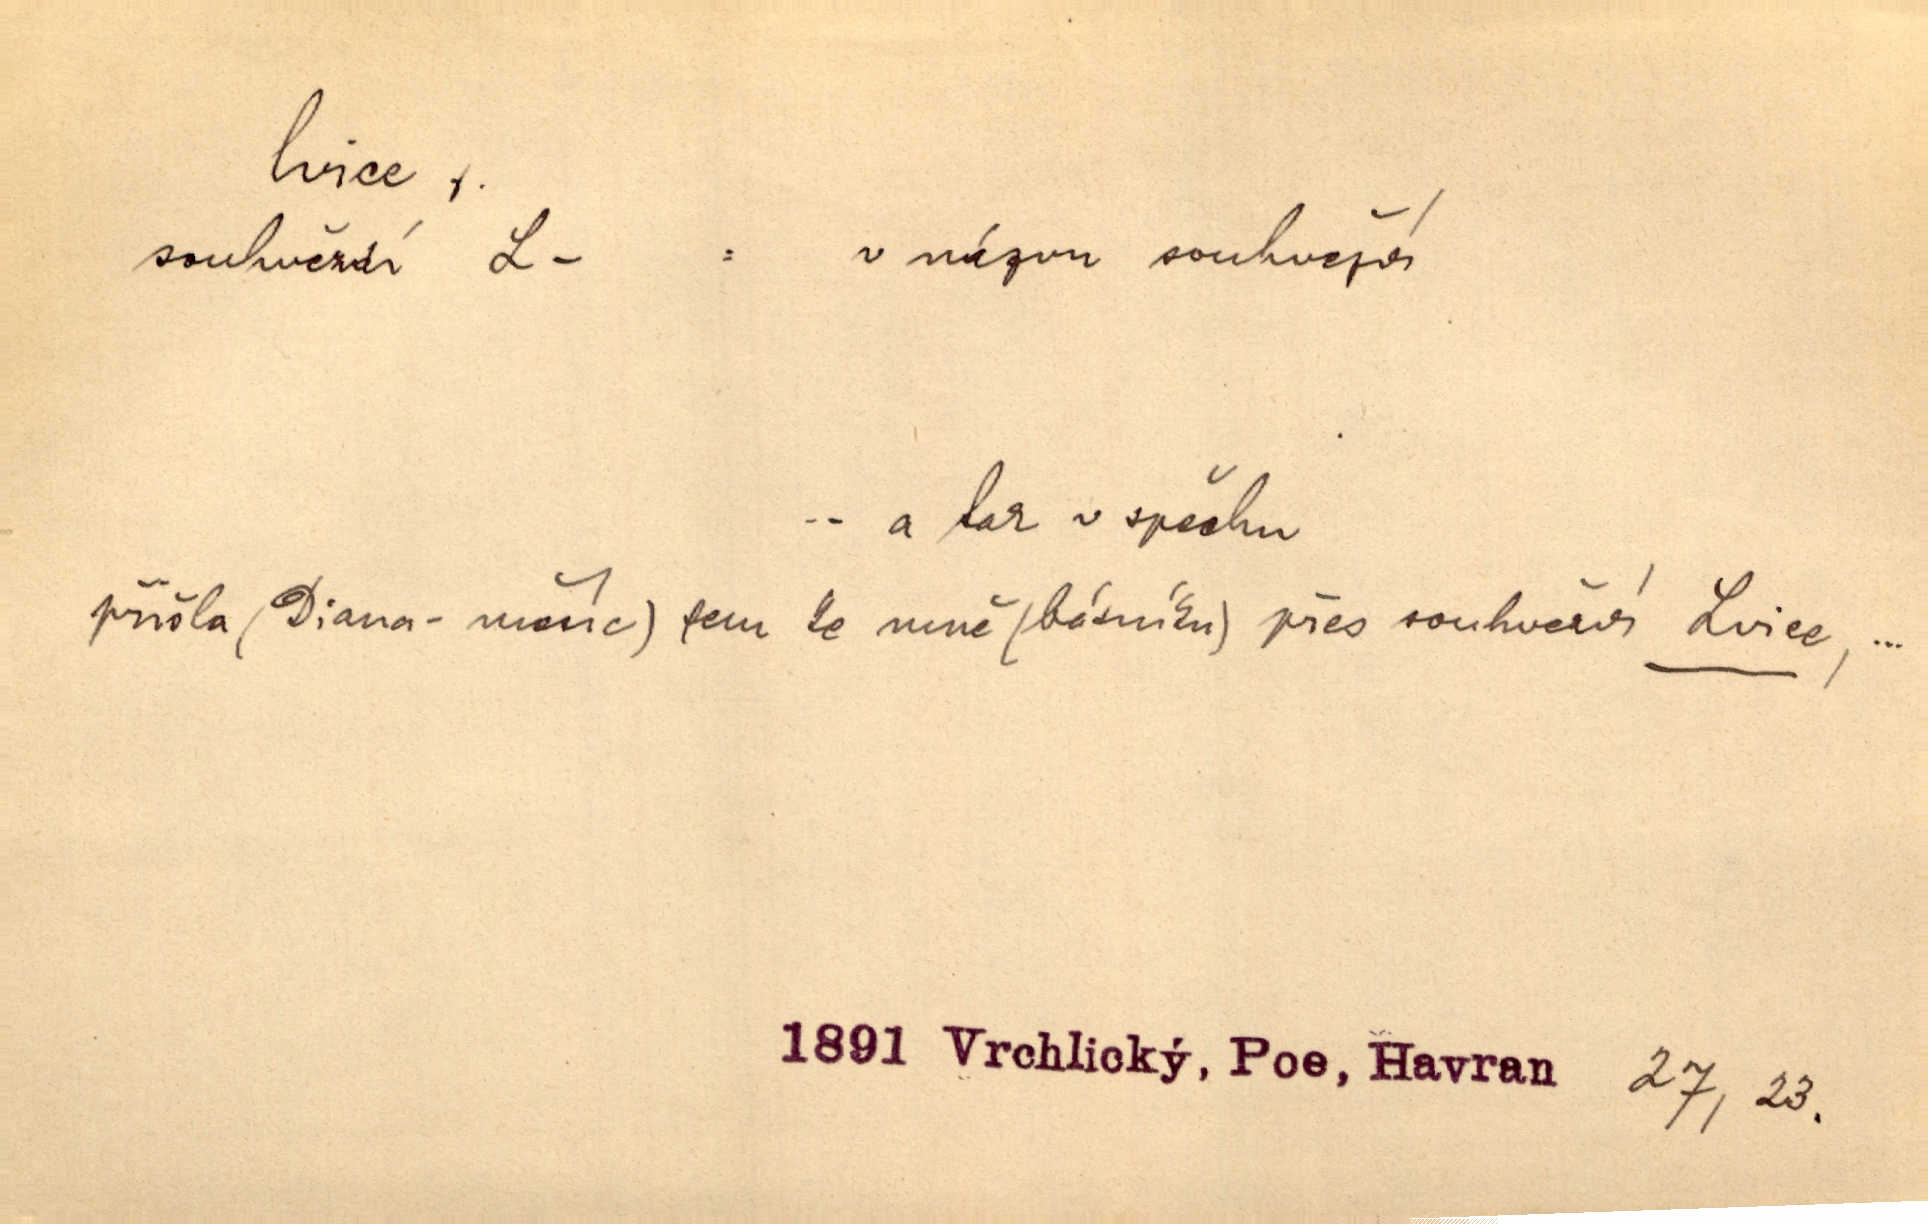 lvice f.
souhvězdí L - = v názvu souhvězdí
-- a tak v spěchu
přišla (Diana - měsíc) sem ke mně (básníku) přes souhvězdí Lvice, ...
1891 Vrchlický, Poe, Havran 27, 23.